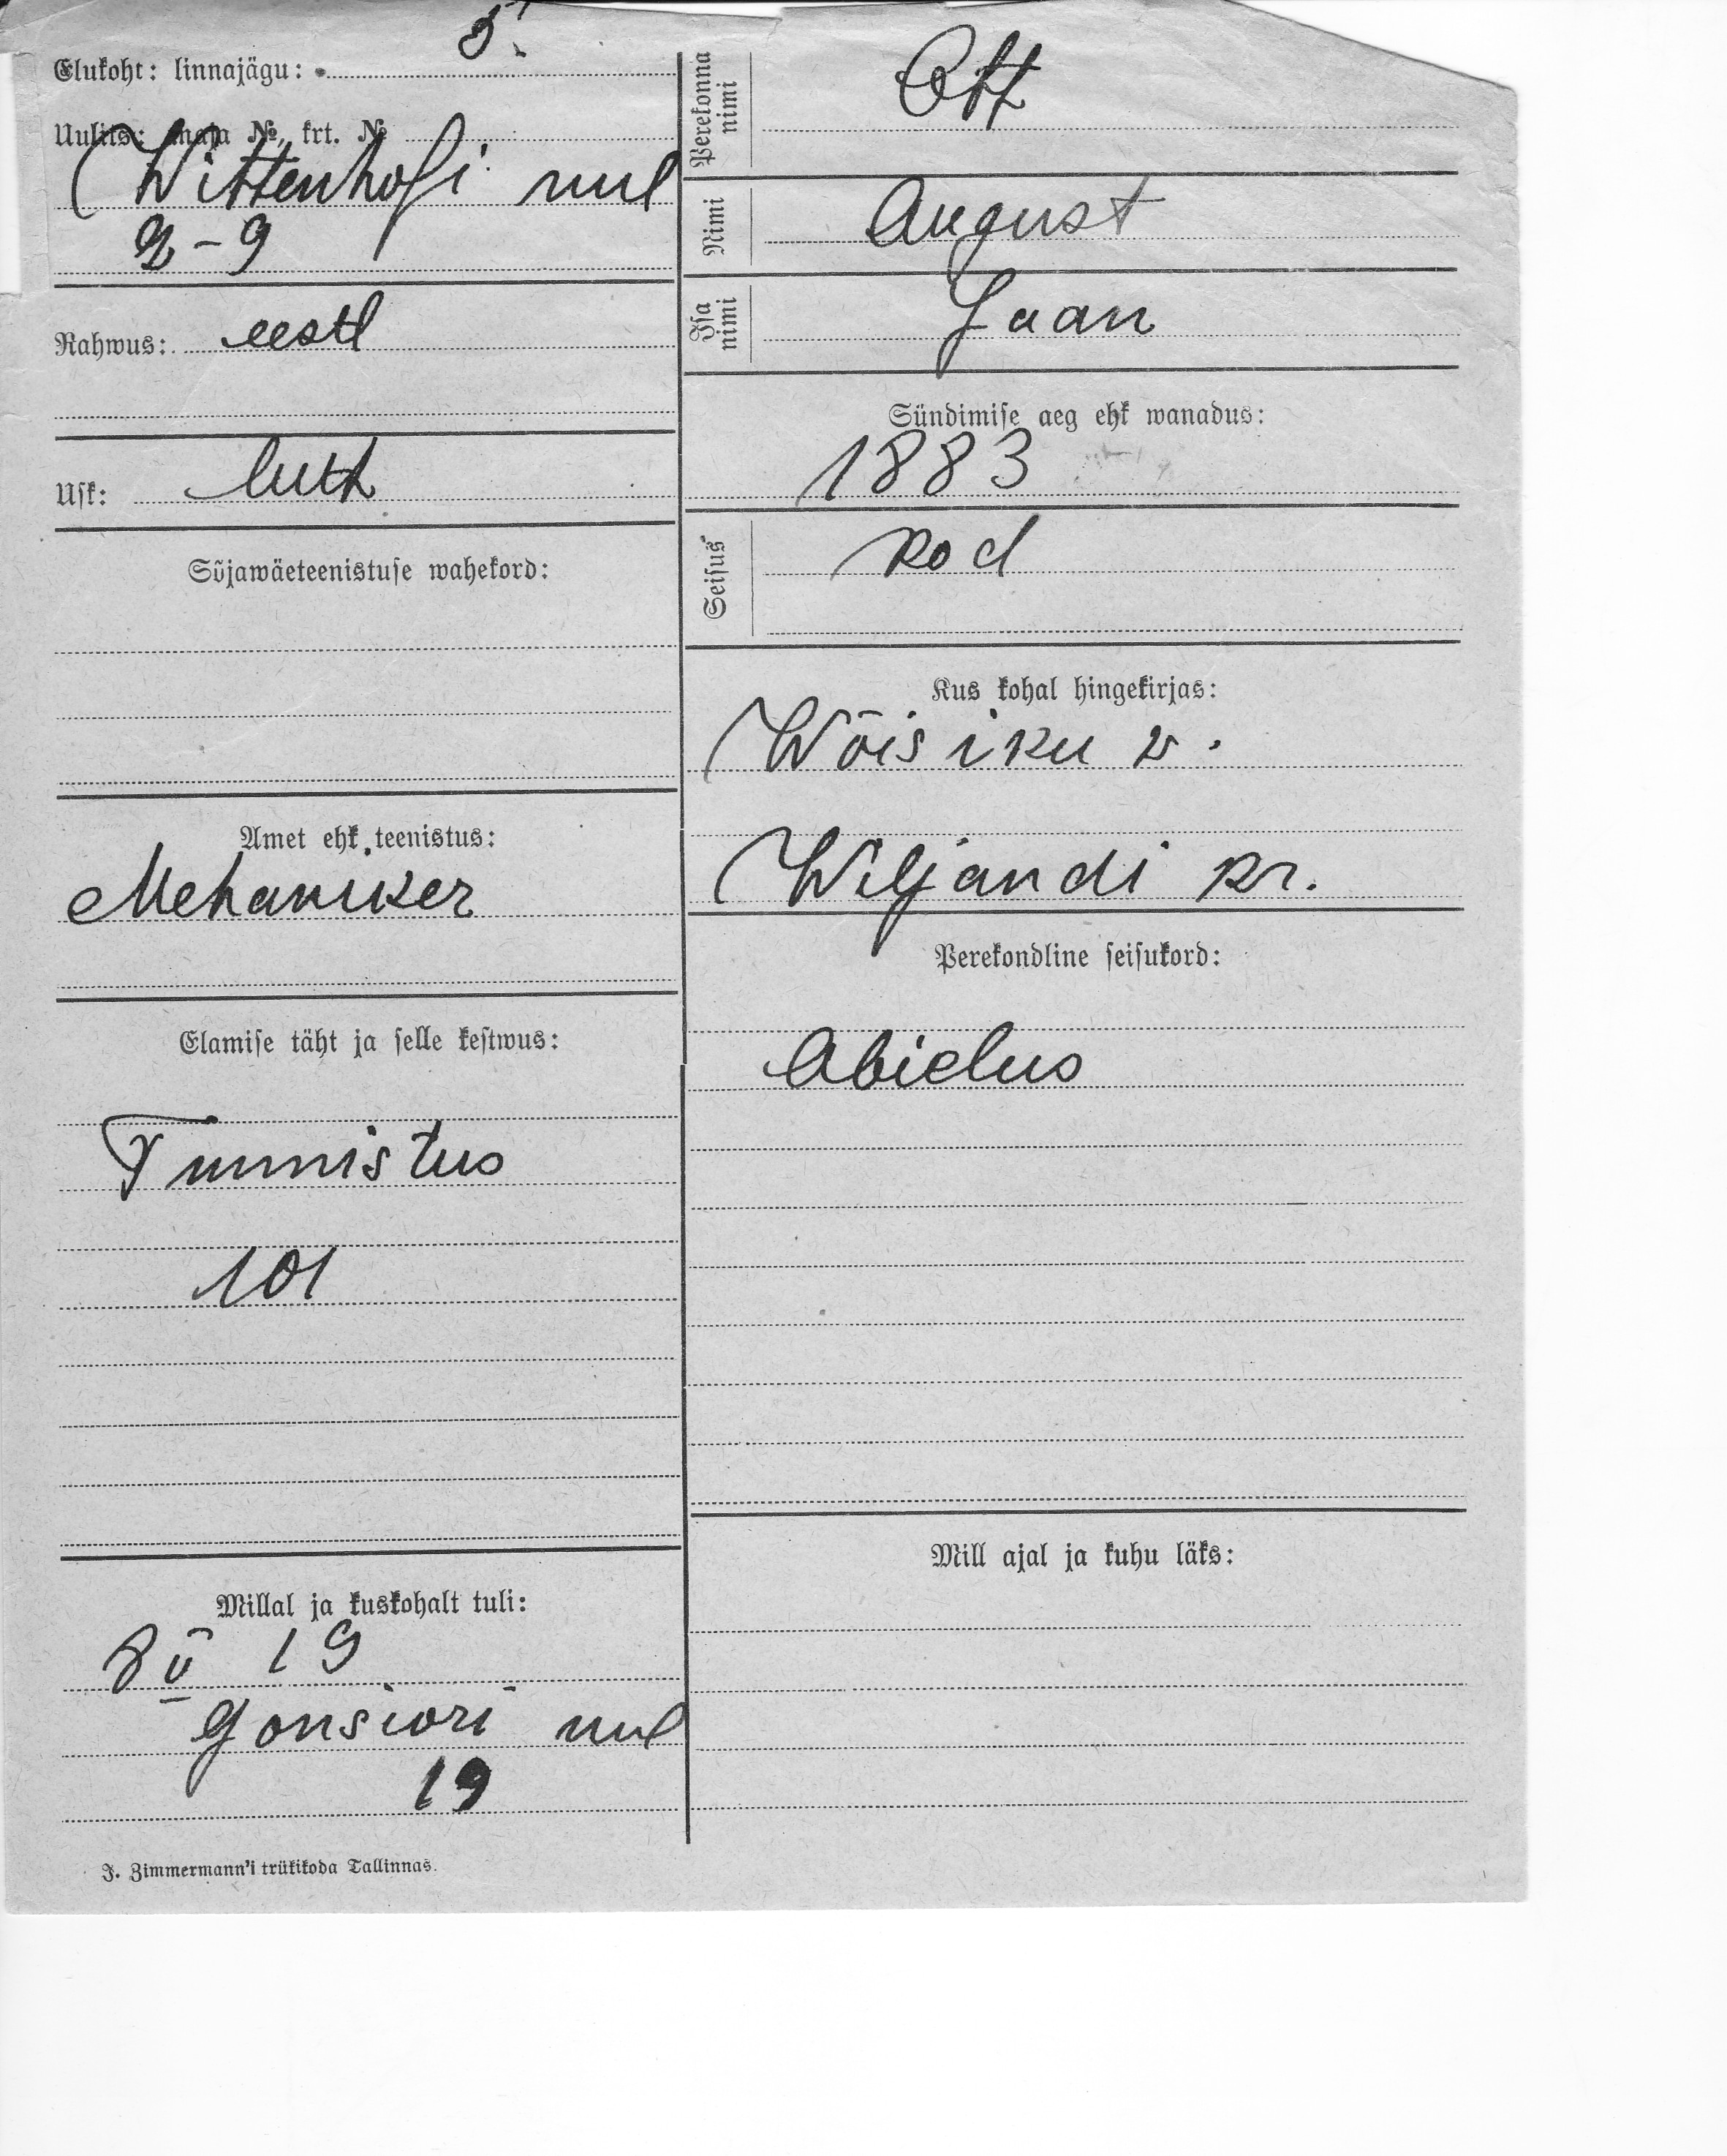 Elukoht: linnajägu: 5.
Uulits: maja №, krt. №
Wittenhofi uul
2-9
Rahwus: eestl
Usk: luth
Sõjawäeteenistuse wahekord:
Amet ehk teenistus:
Mehaniker
Elamise täht ja selle kestwus:
Tunnistus
101
Millal ja kuskohalt tuli:
19
Gonsiori uul
19
J. Zimmermann'i trükikoda Tallinnas.
Perekonna nimi Ott
Nimi August
Isa nimi Jaan
Sündimise aeg ehk wanadus:
1883
Seisus kod
Kus kohal hingekirjas:
Wõisiku v.
Wiljandi kr.
Perekondline seisukord:
Abielus
Mill ajal ja kuhu läks: